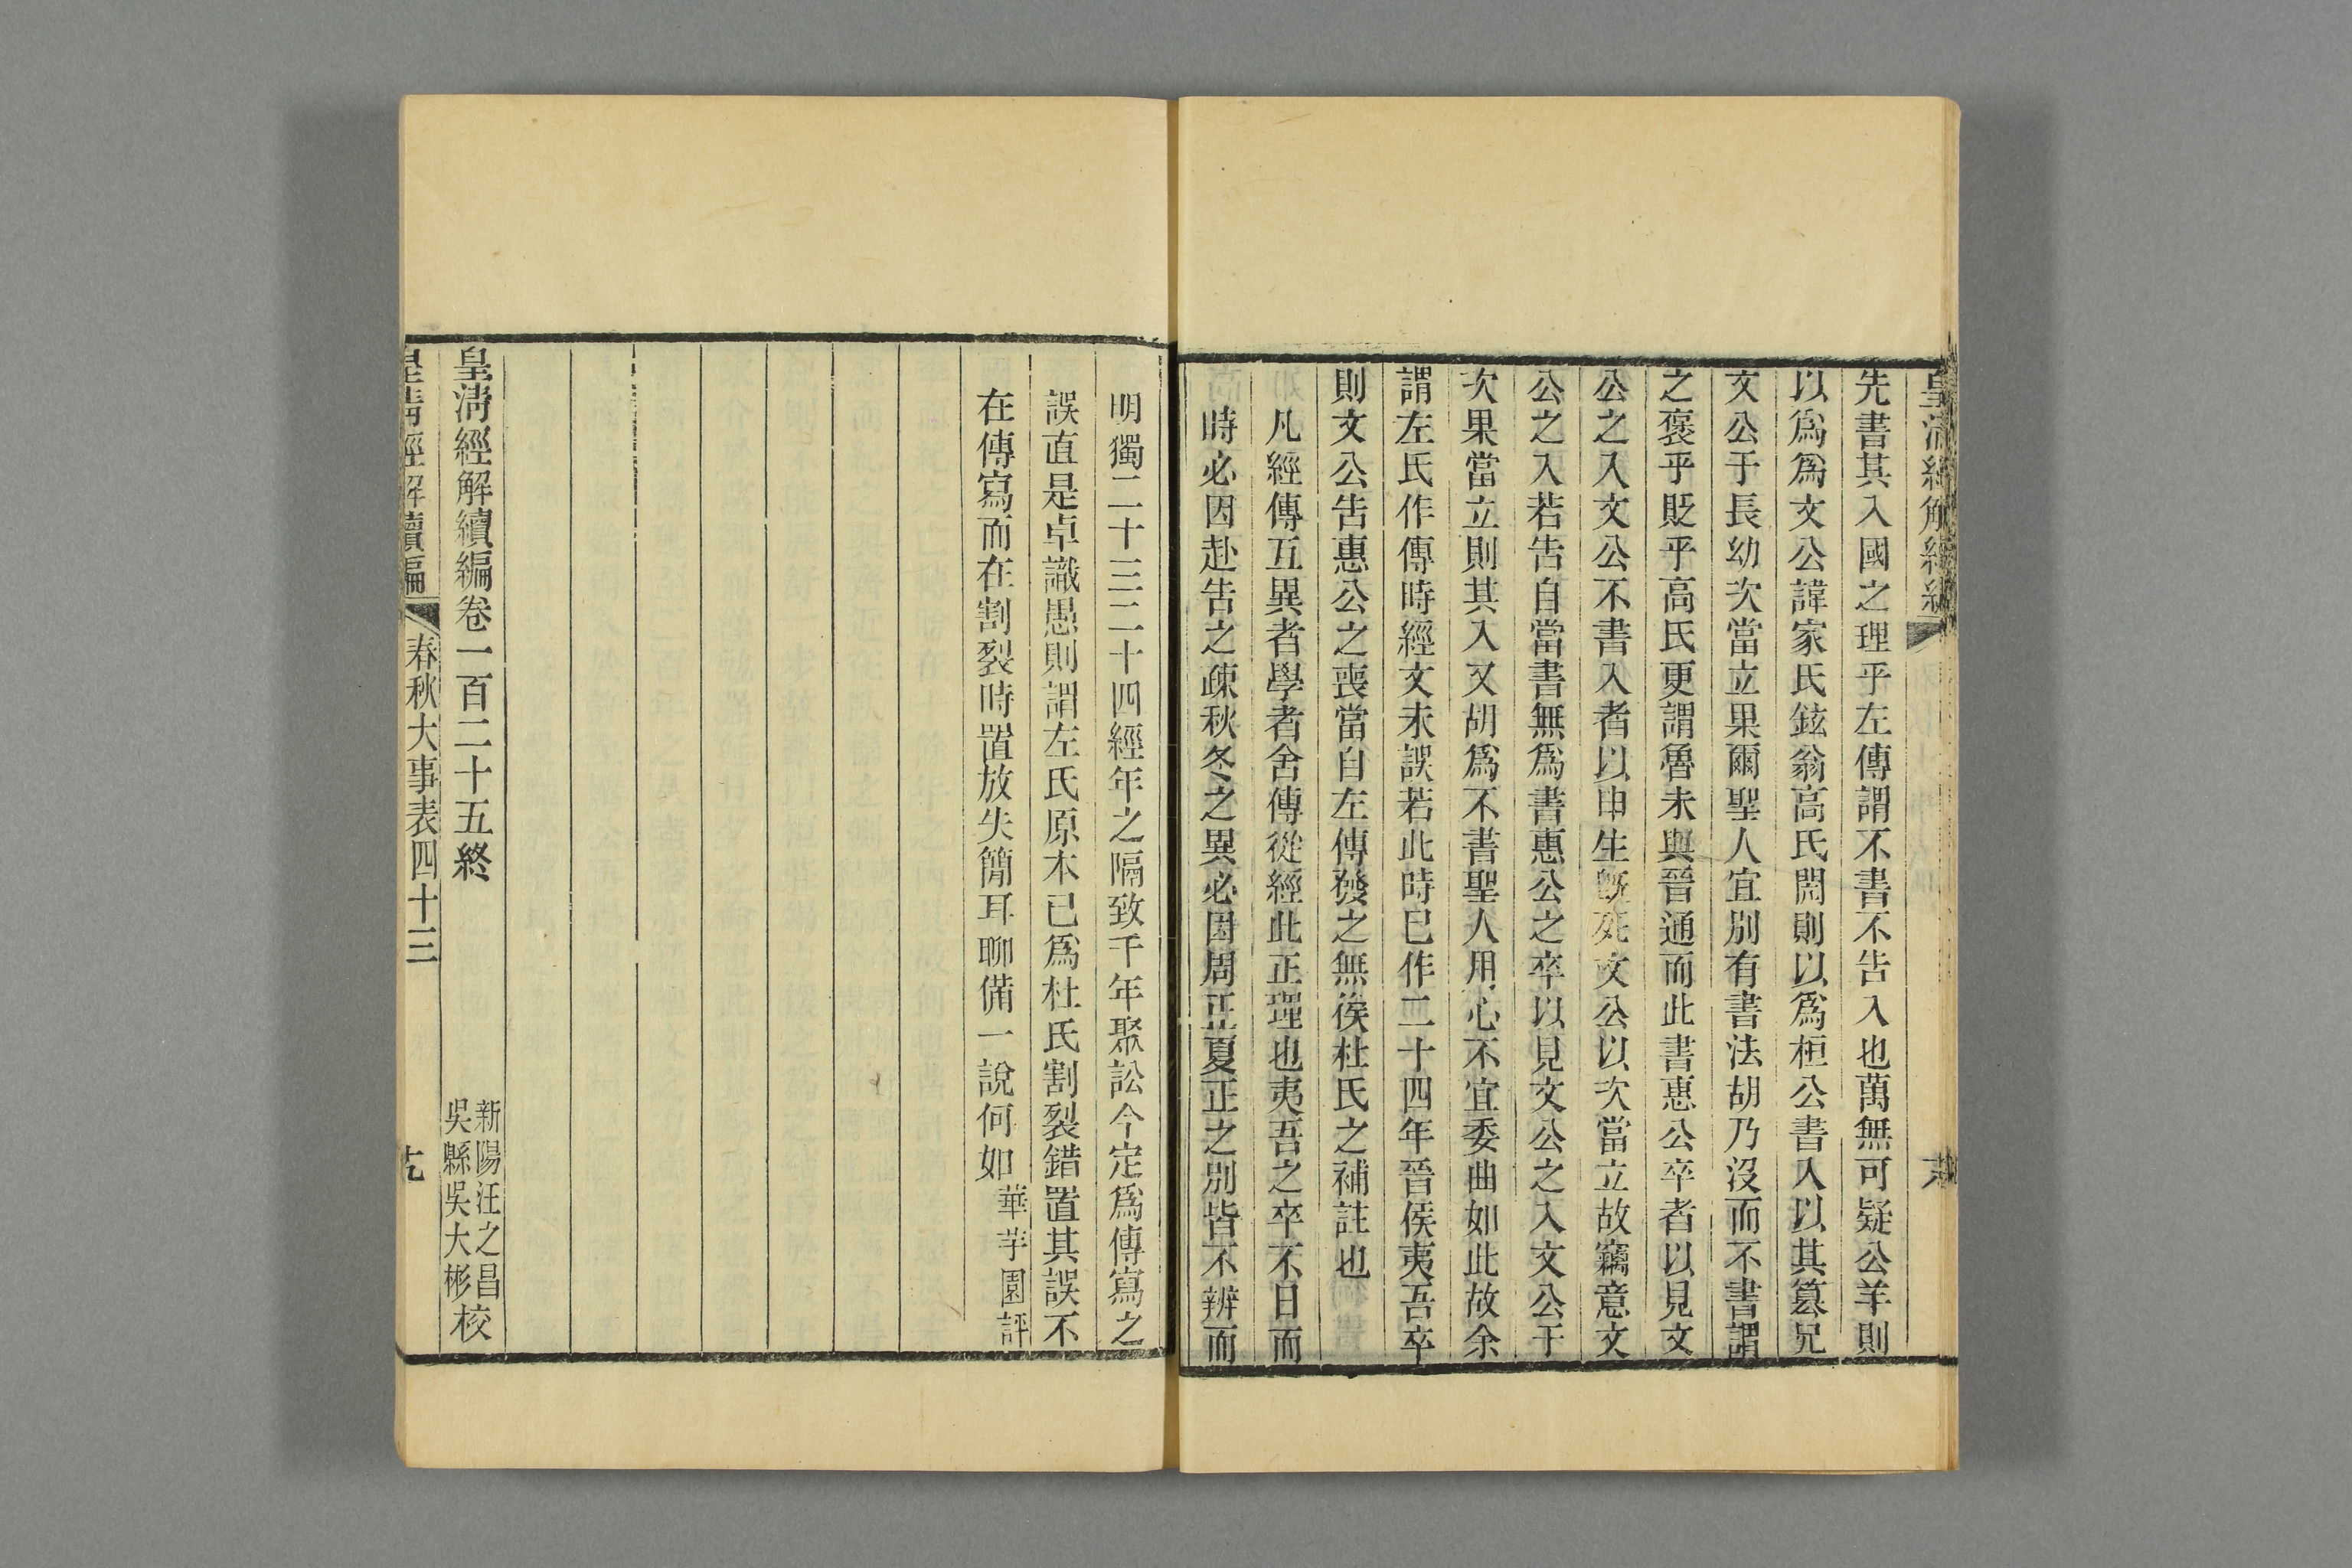 皇清經解續編
先書其入國之理乎左傳謂不書不告入也萬無可疑公羊則
以爲爲文公諱家氏鉉翁高氏閌則以爲桓公書入以其篡兄
文公于長幼次當立果爾聖人宜別有書法胡乃沒而不書謂
之褒乎貶乎高氏更謂魯未與晉通而此書惠公卒者以見文
公之入文公不書入者以申生旣死文公以次當立故竊意文
公之入若告自當書無爲書惠公之卒以見文公之入文公于
次果當立則其入又胡爲不書聖人用心不宜委曲如此故余
謂左氏作傳時經文未誤若此時已作二十四年晉侯夷吾卒
則文公告惠公之喪當自左傳發之無俟杜氏之補註也
凡經傳互異者學者舍傳從經此正理也夷吾之卒不日而
時必因赴告之疎秋冬之異必因周正夏正之別皆不辨而
明獨二十三二十四經年之隔致千年聚訟今定爲傳寫之
誤直是卓識愚則謂左氏原本已爲杜氏割裂錯置其誤不
在傳寫而在割裂時置放失簡耳聊備一說何如華芋園評
皇清經解續編卷一百二十五終
新陽汪之昌
吳縣吳大彬校
皇清經解續編
春秋大事表四十三